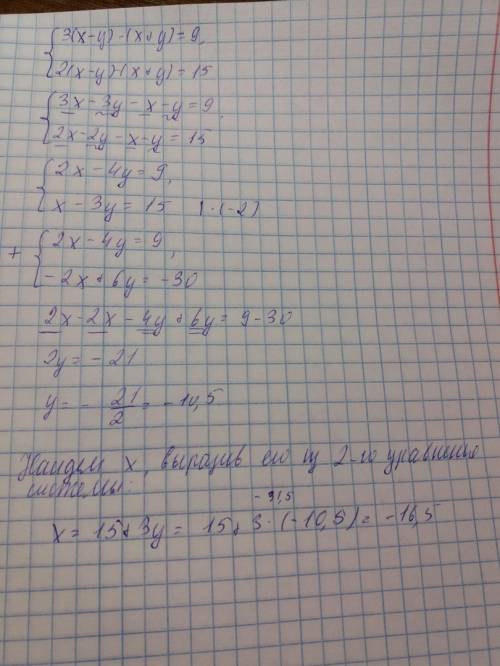 {3(x-y)-(x+y)=9,
{2(x-y)-(x+y)=15
{3x-3y-x-y=9,
{2x-2y-x-y=15
{2x-4y=9,
{x-3y=15 |·(-2)
+ {2x-4y=9,
{-2x+6y=-30
2x-2x-4y+6y=9-30
2y=-21
y=-21/2=-10,5
Найдём x, выразив его из 2-го уравнения
системы:
-31,5
x=15+3y=15+3·(-10,5)=-16,5